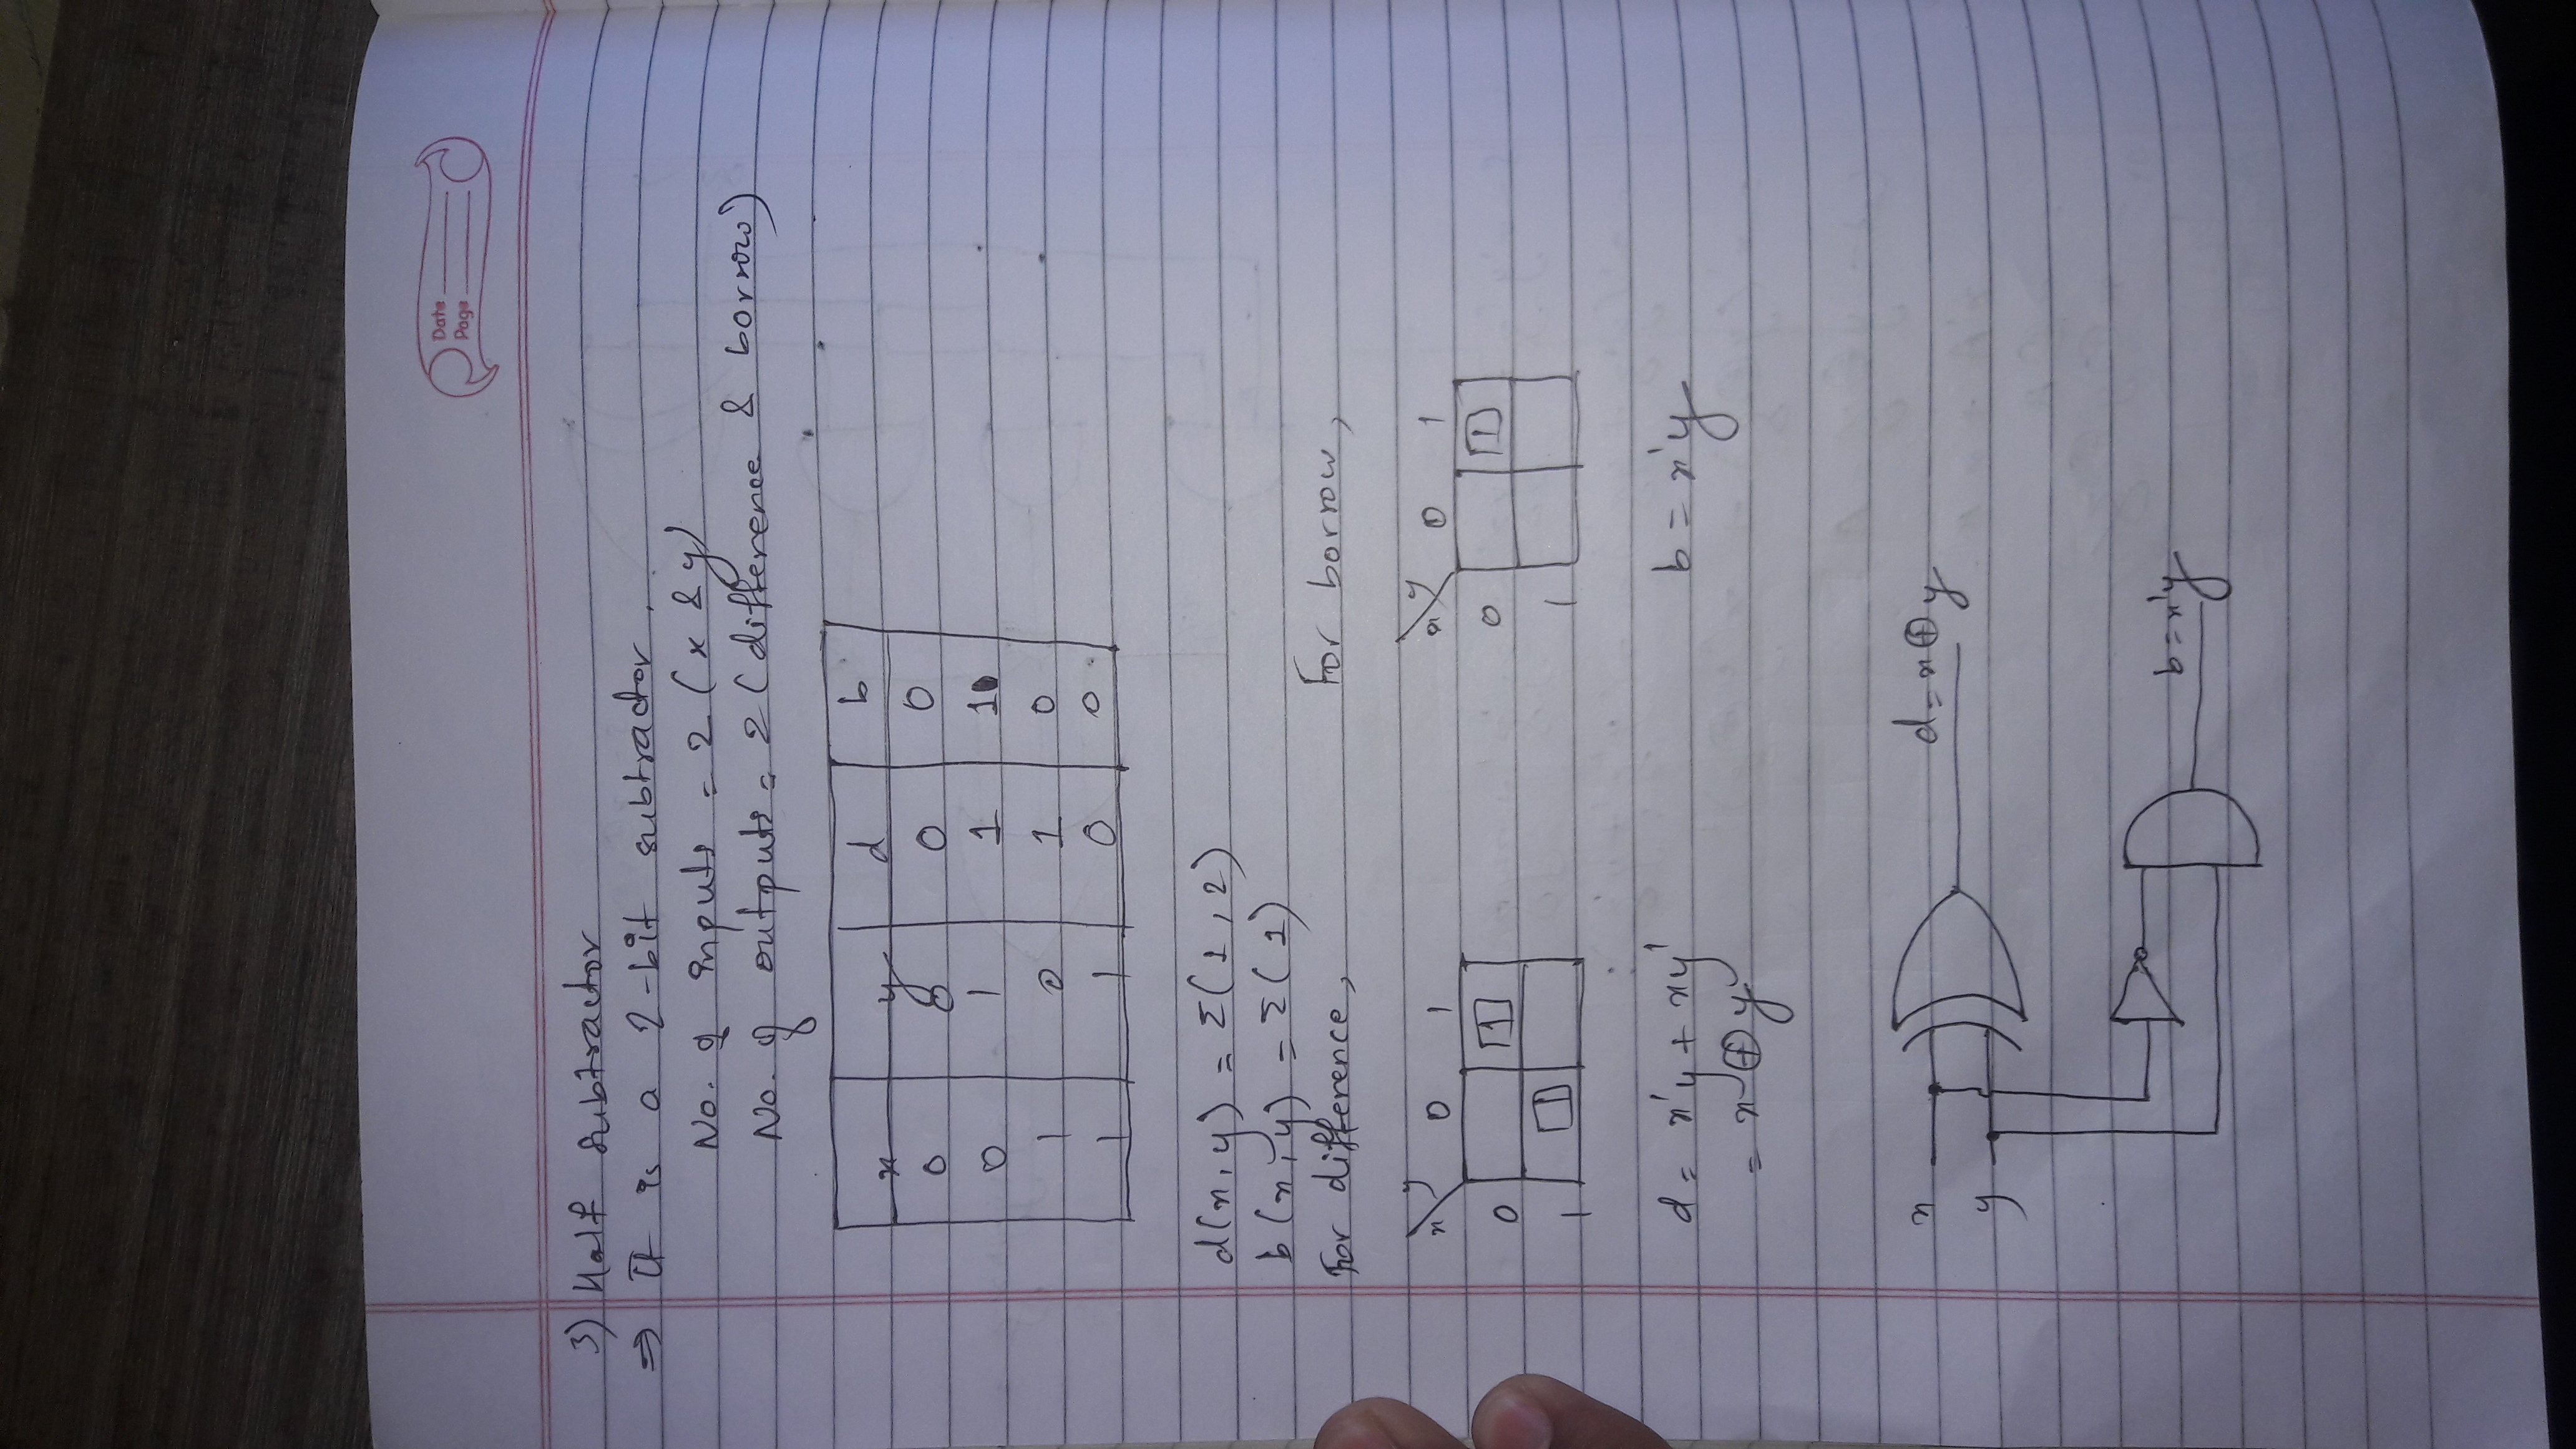 Date
Page
3) Half subtractor
⇒ It is a 2-bit subtractor.
No. of inputs = 2 (x & y)
No. of outputs = 2 (difference & borrow)
x y d b
0 0 0 0
0 1 1 1
1 0 1 0
1 1 0 0
d(x,y) = Σ(1,2)
b(x,y) = Σ(1)
For difference, For borrow,
x y 0 1 x y 0 1
0 1 0 1
1 1 1
d = x'y + xy' b = x'y
= x ⊕ y
x d = x ⊕ y
y
b = x'y